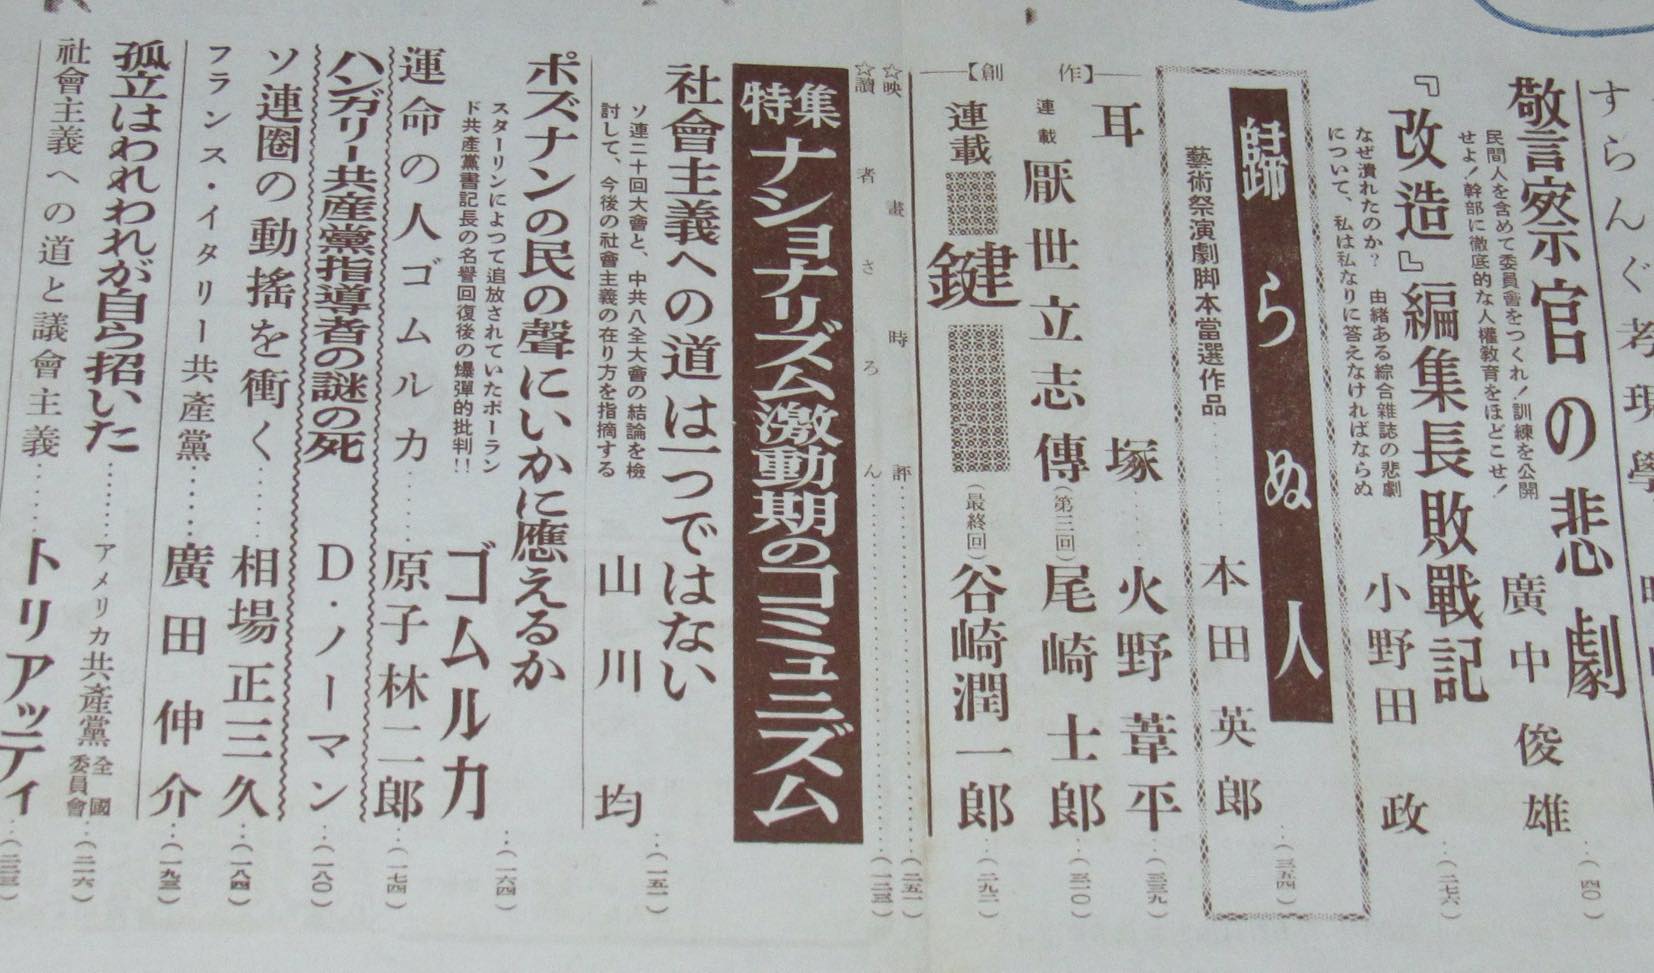 すらんぐ考現學
警察官の悲劇
民間人を含めて委員會をつくれ！訓練を公開
せよ！幹部に徹底的な人權教育をほどこせ！
廣中俊雄‥(四〇)
『改造』編集長敗戰記
なぜ潰れたのか？　由緒ある綜合雜誌の悲劇
について、私は私なりに答えなければならぬ
小野田政‥(二七六)
歸らぬ人
藝術祭演劇脚本當選作品……本田英郎‥(三五四)
【創作】
耳塚……火野葦平‥(三三九)
連載 厭世立志傳(第三回)尾崎士郎‥(三一〇)
連載 鍵(最終回)谷崎潤一郎‥(二九二)
☆映畫時評……(二五一)
☆讀者さろん……(一二三)
特集 ナショナリズム激動期のコミュニズム
社會主義への道は一つではない
ソ連二十回大會と、中共八全大會の結論を檢
討して、今後の社會主義の在り方を指摘する
山川均‥(一五一)
ポズナンの民の聲にいかに應えるか
スターリンによつて追放されていたポーラン
ド共產黨書記長の名譽回復後の爆彈的批判!!
ゴムルカ‥(一六四)
運命の人ゴムルカ……原子林二郎‥(一七四)
ハンガリー共産黨指導者の謎の死　D・ノーマン‥(一八〇)
ソ連圏の動搖を衝く……相場正三久‥(一八四)
フランス・イタリー共產黨……廣田伸介‥(一九三)
孤立はわれわれが自ら招いた……アメリカ共產黨全國委員會‥(二一六)
社會主義への道と議會主義……トリアッティ‥(二二三)